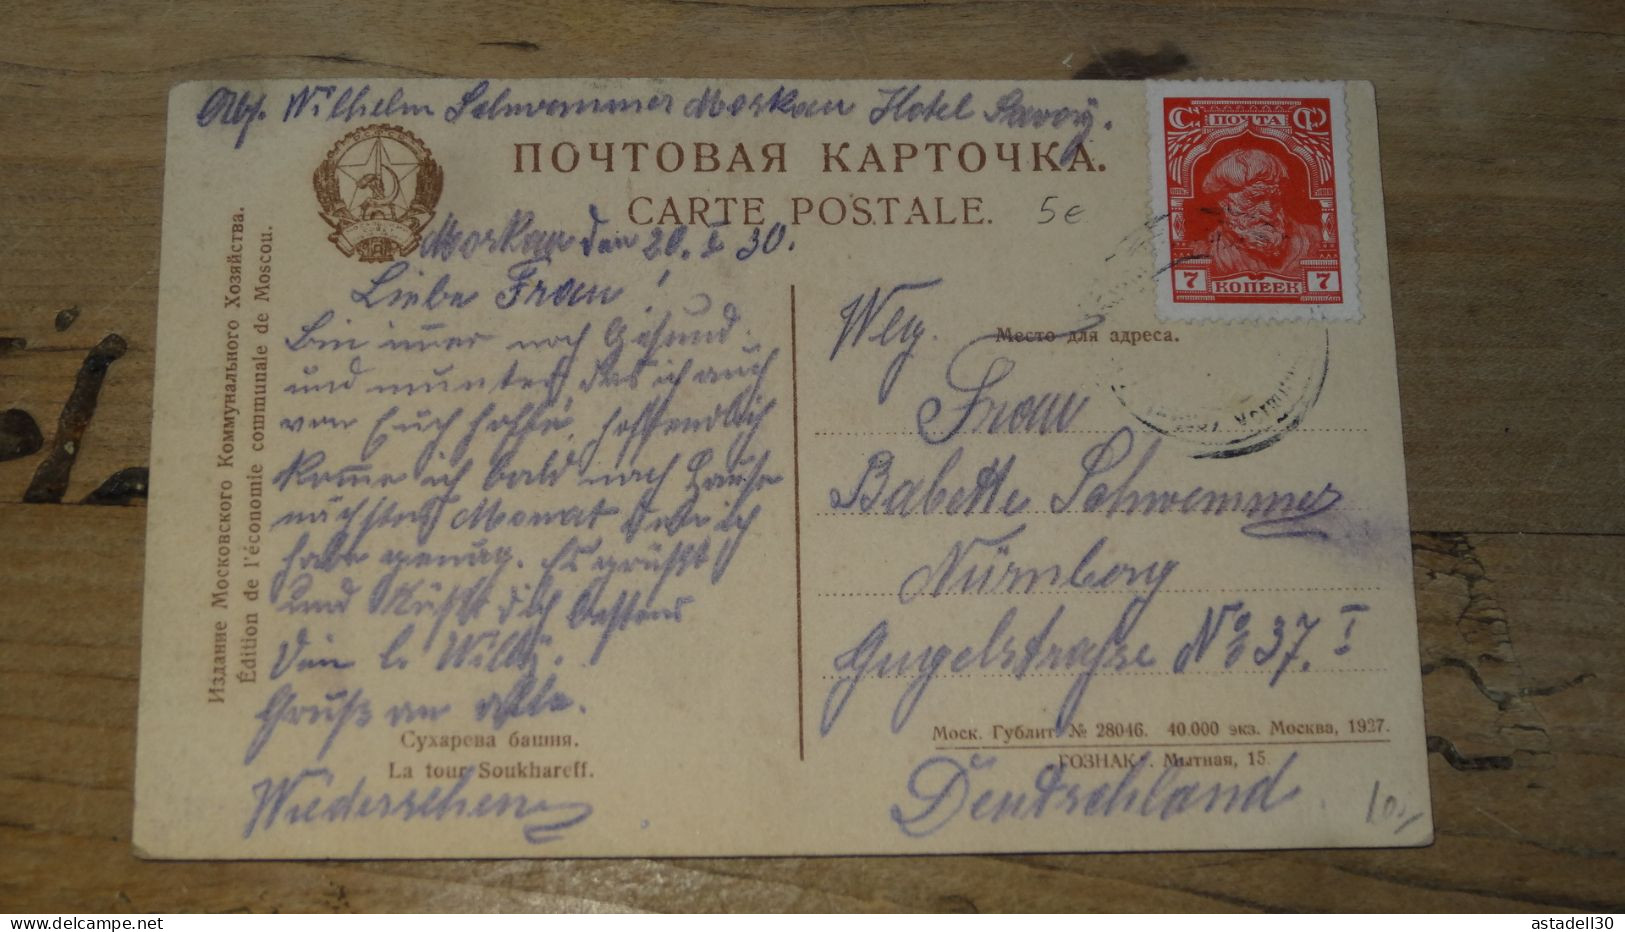 Abs. Wilhelm Schwemmer Moskau Hotel Savoÿ.
ПОЧТОВАЯ КАРТОЧКА.
CARTE POSTALE.
5e
ПОЧТА
7 КОПЕЕК 7
Издание Московского Коммунального Хозяйства.
Édition de l'économie communale de Moscou.
Moskau den 20. I 30.
Liebe Frau!
Bin immer noch Gesund
und munter, das ich auch
von Euch hoffe, hoffendlich
komme ich bald nach Hause
nächstes Monat denn ich
habe genug. Es grüßt
und Küßt dich bestens
Dein l. Willÿ.
Gruß an alle.
Сухарева башня.
La tour Soukhareff.
Wiedersehen
Место для адреса.
Frau
Babette Schwemmer
Nürnberg
Gugelstraße No 37. I
Моск. Гублит. № 28046. 40.000 экз. Москва, 1927.
ГОЗНАК. Мытная, 15
Deutschland.
10,-
delcampe.net
astadell30